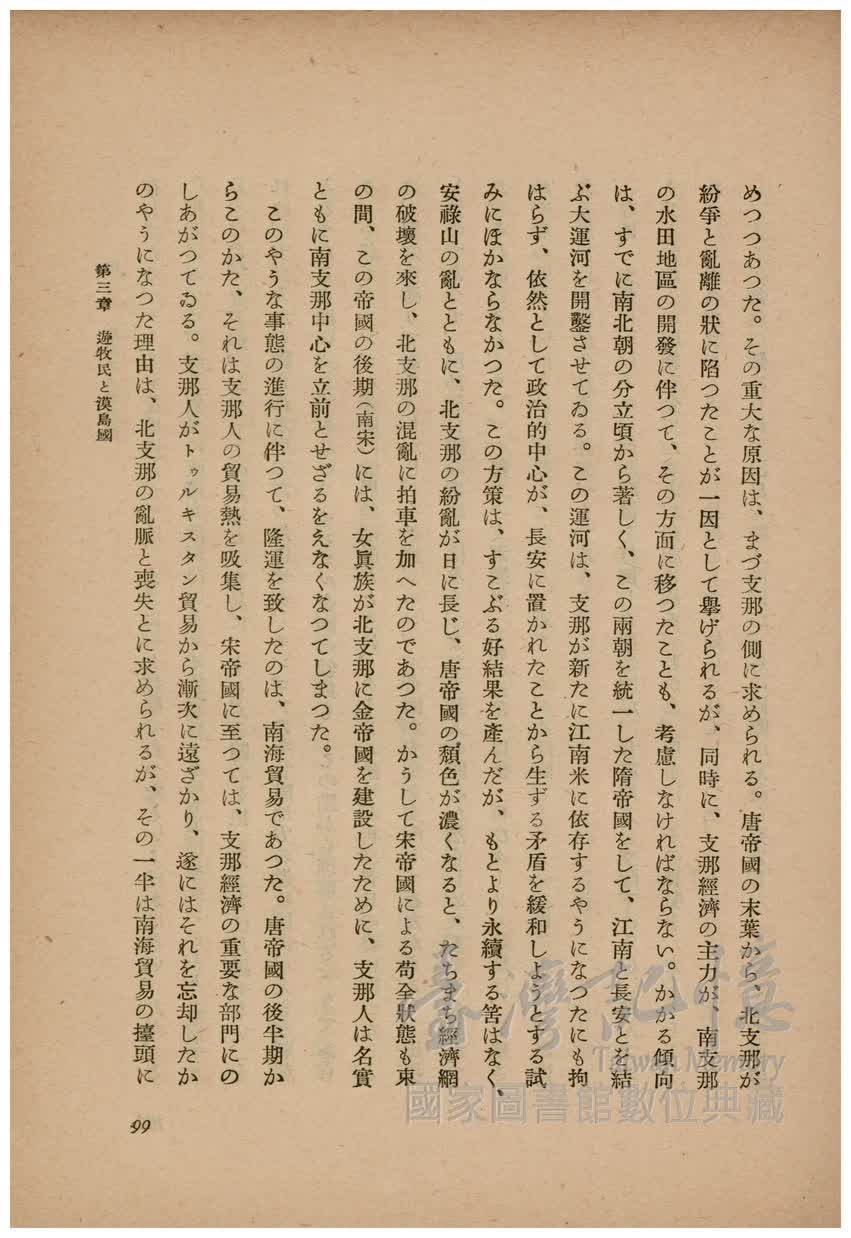 めつつあつた。その重大な原因は、まづ支那の側に求められる。唐帝國の末葉から、北支那が
紛爭と亂離の狀に陷つたことが一因として擧げられるが、同時に、支那經濟の主力が、南支那
の水田地區の開發に伴つて、その方面に移つたことも、考慮しなければならない。かかる傾向
は、すでに南北朝の分立頃から著しく、この兩朝を統一した隋帝國をして、江南と長安とを結
ぶ大運河を開鑿させてゐる。この運河は、支那が新たに江南米に依存するやうになつたにも拘
はらず、依然として政治的中心が、長安に置かれたことから生ずる矛盾を緩和しようとする試
みにほかならなかつた。この方策は、すこぶる好結果を產んだが、もとより永續する筈はなく、
安祿山の亂とともに、北支那の紛亂が日に長じ、唐帝國の頽色が濃くなると、たちまち經濟網
の破壞を來し、北支那の混亂に拍車を加へたのであつた。かうして宋帝國による苟全狀態も束
の間、この帝國の後期(南宋)には、女眞族が北支那に金帝國を建設したために、支那人は名實
ともに南支那中心を立前とせざるをえなくなつてしまつた。
このやうな事態の進行に伴つて、隆運を致したのは、南海貿易であつた。唐帝國の後半期か
らこのかた、それは支那人の貿易熱を吸集し、宋帝國に至つては、支那經濟の重要な部門にの
しあがつてゐる。支那人がトゥルキスタン貿易から漸次に遠ざかり、遂にはそれを忘却したか
のやうになつた理由は、北支那の亂脈と喪失とに求められるが、その一半は南海貿易の擡頭に
第三章 遊牧民と漠島國
99
臺灣記憶
Taiwan Memory
國家圖書館數位典藏